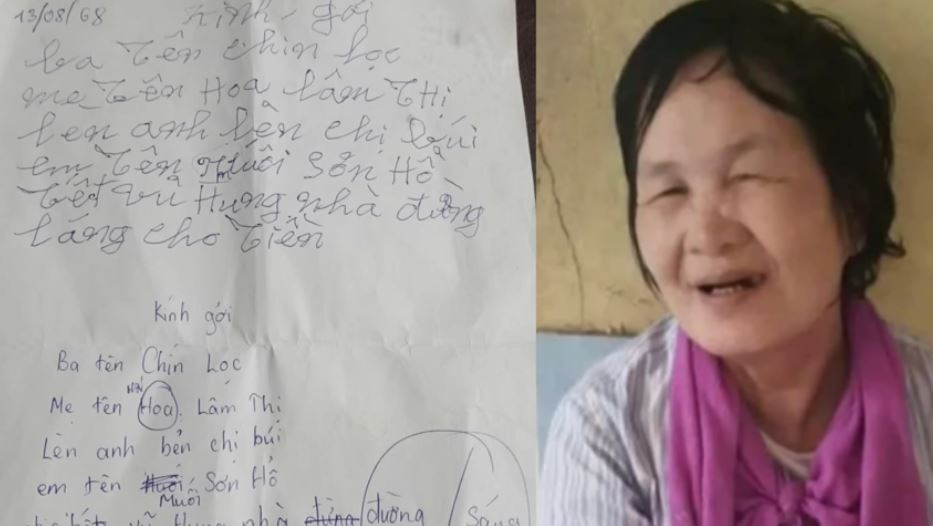 13/08/68
Kính gởi
ba tên chin lọc
mẹ tên Hoa lâm THị
lẹn anh bẻn chị búi
em tên muôi Sơn Hô
tết vũ Hưng nhà đường
láng cho tiền
Kính gởi
Ba tên Chín Lọc
Mẹ tên Hoa. Lâm Thị
Lèn anh bẻn chị búi
em tên Muối Sơn Hồ
vũ Hưng nhà đường sáng